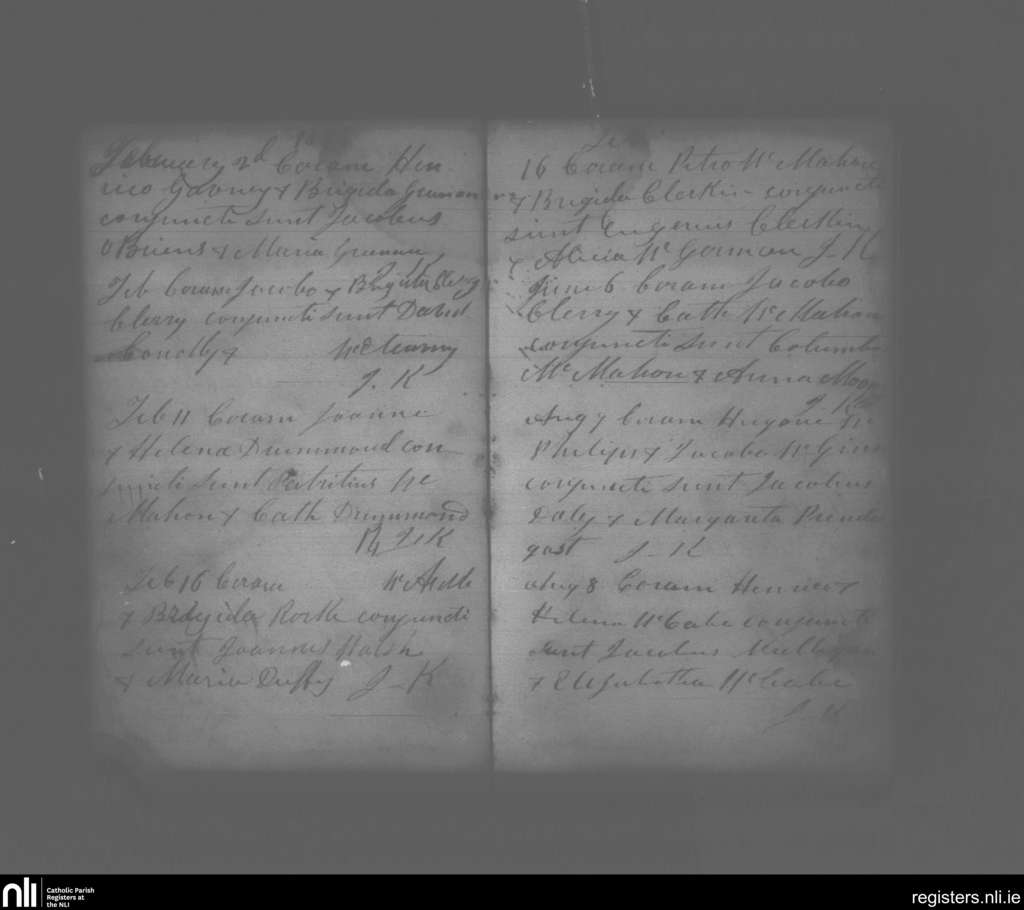 February 2d Coram Hen
rico Gavney & Brigida Grennan
conjuncti sunt Jacobus
O Briens & Maria Grennan
Feb Coram Jacobo & Brigida Clery
Clerry conjuncti sunt David
Conolly & McCearny
J. K
Feb 11 Coram Joanne
& Helena Drummond con
juncti sunt Patritius Mc
Mahon & Cath Drummond
J K
Feb 16 Coram McArdle
& Bridgida Rorke conjuncti
sunt Joannes Walsh
& Maria Duffy J - K
16 Coram Petro Mc Mahon
& Brigida Clerkin conjuncti
sunt Eugenius Clerkin
& Alicia Mc Gorman J - K
June 6 Coram Jacobo
Clerry & Cath Mc Mahon
conjuncti sunt Columba
Mc Mahon & Anna Moor
J K
Aug 7 Coram Hugone Mc
Philips & Jacobo Mc Ginn
conjuncti sunt Jacobus
Daly & Margarita Prende
gast J - K
Aug 8 Coram Henrico &
Helena McCabe conjuncti
sunt Jacobus Mulligan
& Elisabetha McCabe
J - K
nli
Catholic Parish
Registers at
the NLI
registers.nli.ie